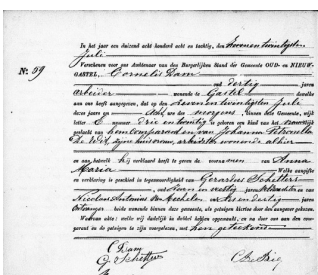 In het jaar een duizend acht honderd acht en tachtig, den zeven en twintigsten
Juli
Verscheen voor ons Ambtenaar van den Burgerlijken Stand der Gemeente OUD- en NIEUW-
N°. 59
GASTEL, Cornelis Dam
oud dertig jaren
arbeider wonende te Gastel dewelke
aan ons heeft aangegeven, dat op den zeven en twintigsten Juli
dezes jaars ten acht ure des morgens, binnen deze Gemeente, wijk
letter C nummer drie en twintig is geboren een kind van het vrouwelijk
geslacht van hem comparant en van Johanna Petronella
De Wit, zijne huisvrouw, arbeidster, wonende alhier
en aan hetwelk hij verklaard heeft te geven de voornamen van Anna
Maria Welke aangifte
en verklaring is geschied in tegenwoordigheid van Gerardus Schetters
oud en veertig jaren en van
Nicolaas Antonius van Mechelen oud zes en dertig jaren
ontvanger wonende binnen deze gemeente, als getuigen hiertoe door den aangever gekozen.
Waarvan akte: welke wij dadelijk in dubbel hebben opgemaakt, en na door ons aan den com-
parant en de getuigen is voorgelezen, met hen geteekend
C Dam
G Schetters